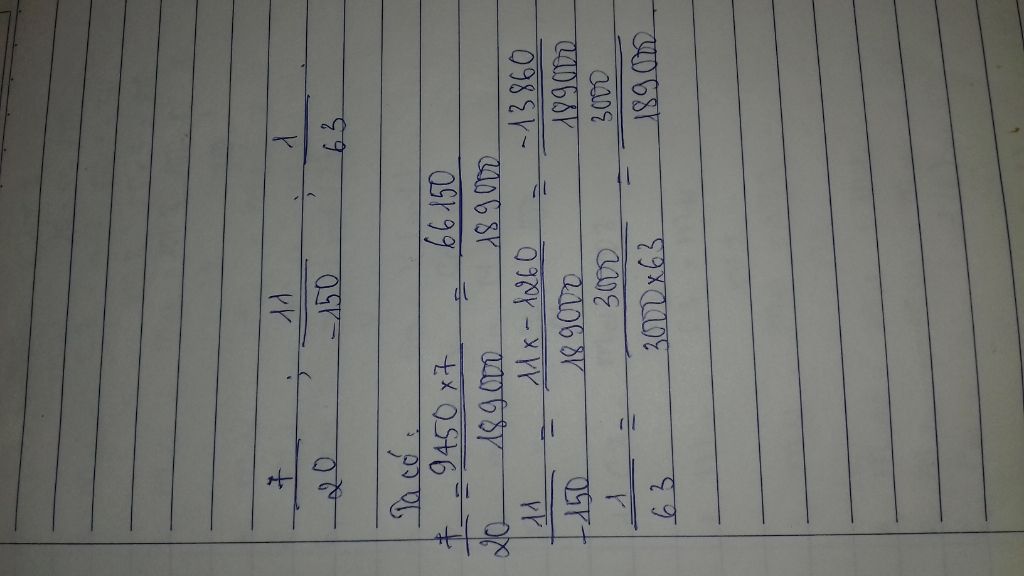 7/20 ; 11/-150 ; 1/63 .
Ta có:
7/20 = 9450 x 7/189000 = 66150/189000
11/-150 = 11 x -1260/189000 = -13860/189000
1/63 = 3000/3000 x 63 = 3000/189000